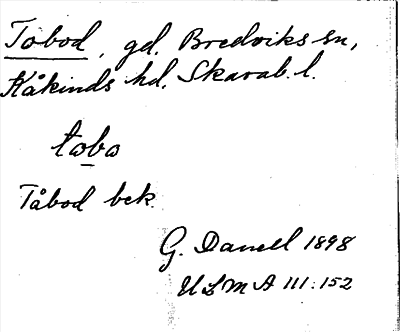 Tobod, gd, Bredviks sn,
Kåkinds hd, Skarab. l.
tobo
Tåbod bek.
G. Danell 1898
ULMA 111:152